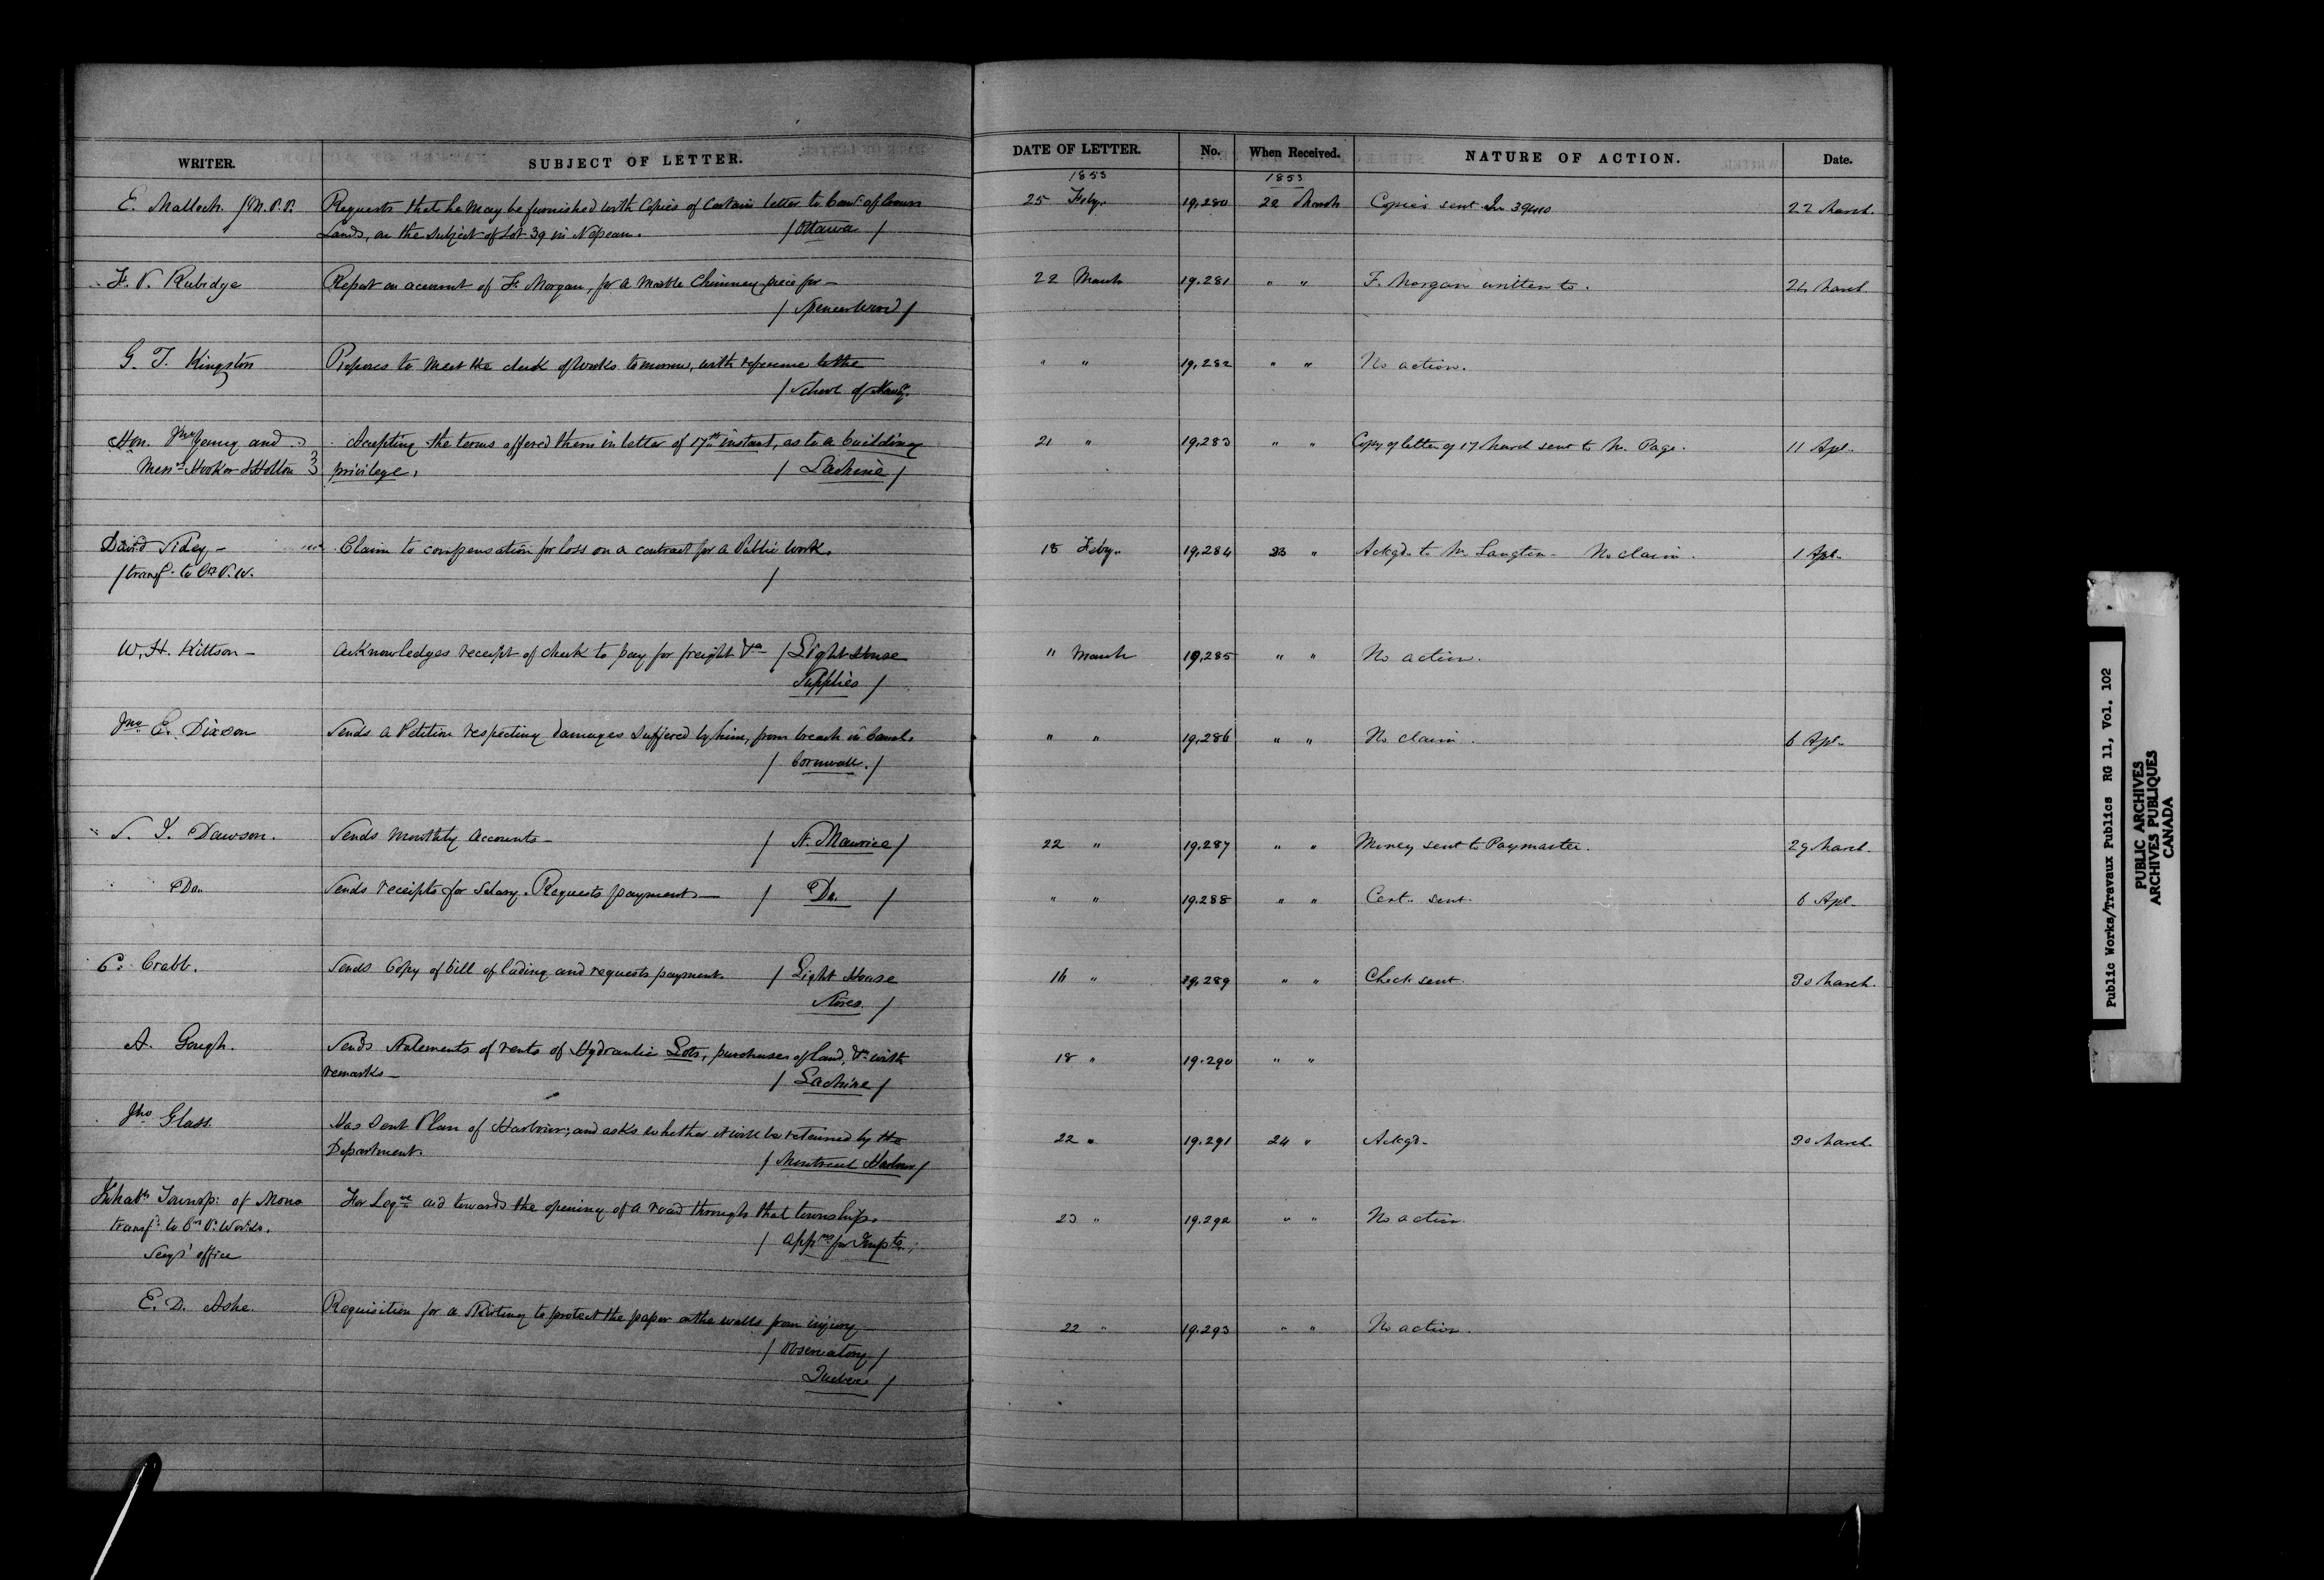 WRITER. SUBJECT OF LETTER. DATE OF LETTER. No. When Received. NATURE OF ACTION. Date.
1853 1853
E. Malloch M.P.P. Requests that he may be furnished with Copies of Certain letter to Comr. of Crown 25 Feby. 19,280 22 March Copies sent 22 March.
Lands, on the subject of Lot 39 in Nepean. / Ottawa /
F. P. Rubidge Report on account of F. Morgan, for a Marble Chimney piece for — 22 March 19.281 " " F. Morgan written to. 24 March
/ Spencer Wood /
G. T. Kingston Proposes to meet the clerk of Works tomorrow, with reference to the " " 19,282 " " No action.
/ School of Navign.
Hon. Jno. Young and Accepting the terms offered them in letter of 17th instant, as to a building 21 " 19,283 " " Copy of letter of 17 March sent to Mr. Page. 11 Apl.
Messrs. Hooker & Holton privilege. / Lachine /
David Sidey — Claim to compensation for loss on a contract for a Public Work. 18 Feby. 19,284 23 " Ackgd. to Mr. Langton — No claim. 1 Apl.
/ transfd. to P.W. /
W. H. Kittson — Acknowledges receipt of check to pay for freight &c / Light House " March 19,285 " " No action.
Supplies /
Jno. E. Dixson Sends a Petition respecting damages suffered by him, from breach in Canal. " " 19,286 " " No claim. 6 Apl.
/ Cornwall. /
S. J. Dawson. Sends monthly accounts — / St. Maurice / 22 " 19.287 " " Money sent to Paymaster. 29 March.
Do. Sends receipts for Salary. Requests payment — / Do. / " " 19.288 " " Cert. sent. 6 Apl.
C. Crabb. Sends Copy of bill of lading and requests payment. / Light House 16 " 19,289 " " Check sent. 30 March.
Stores. /
A. Gough. Sends Statements of rents of Hydraulic Lots, purchases of land, &c with 18 " 19.290 " "
remarks — / Lachine /
Jno Glass. Has sent Plan of Harbour; and asks whether it will be retained by the 22 " 19.291 24 " Ackgd. 30 March.
Department. / Montreal Harbour /
Inhabts Townsp: of Mono For Legve aid towards the opening of a road through that township. 23 " 19.292 " " No action.
transfd. to P. Works. / appns for Impts. /
Secys' office
E. D. Ashe. Requisition for a skirting to protect the paper on the walls from injury 22 " 19.293 " " No action.
/ Observatory /
Quebec /
Public Works/Travaux Publics RG 11, Vol. 102
PUBLIC ARCHIVES
ARCHIVES PUBLIQUES
CANADA